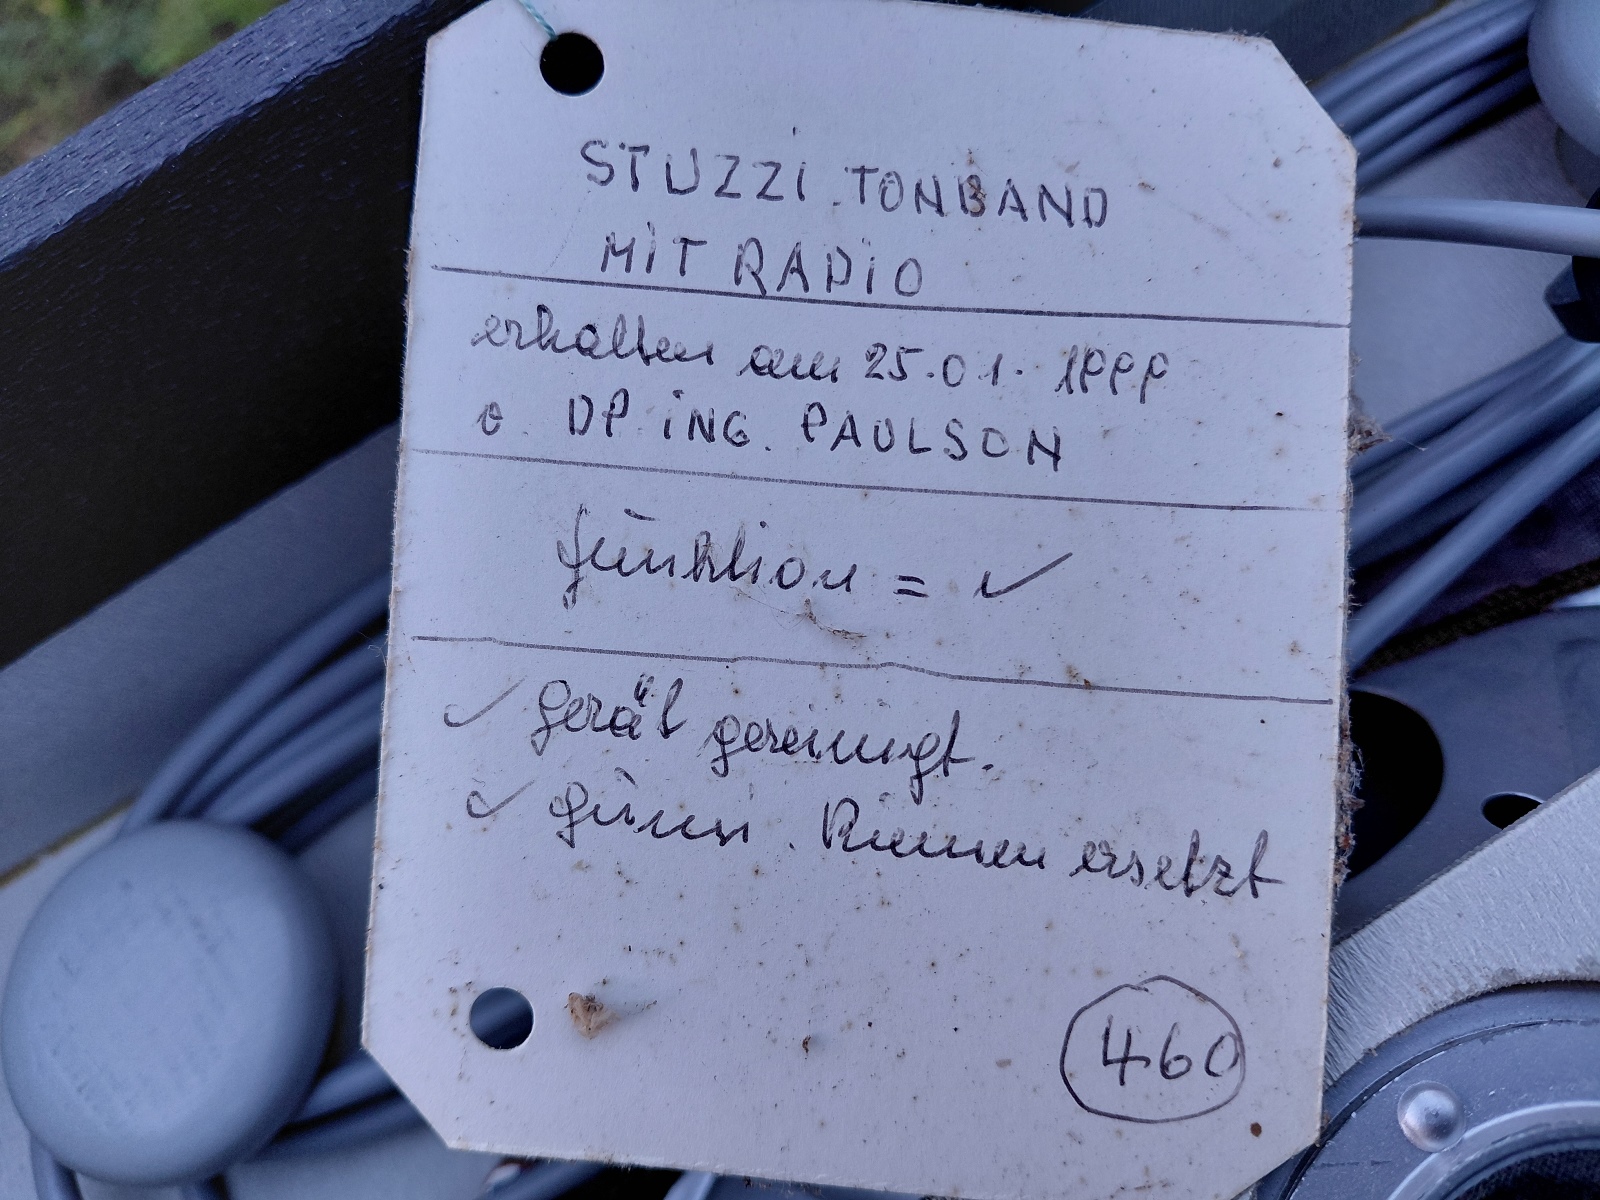 STUZZI TONBAND
MIT RADIO
erhalten am 25.01.1999
v. DP ING. PAULSON
funktion = ✓
✓ gerät gereinigt.
✓ gummi. Riemen ersetzt
460